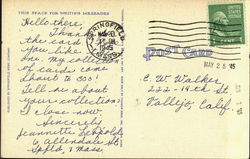 THIS SPACE FOR WRITING MESSAGES
Hello there,
Thanks
the card
you like
one. My collection
of cards come
about to 300!
Tell me about
your collection?
I close now.
Sincerely
Jeannette
6 Allendale St.
Spfld, 8 Mass.
SPRINGFIELD
MAY
1945
MASS.
POST CARD
MAY 26 '45
E. W. Walker
222-14th St.
Vallejo, Calif.